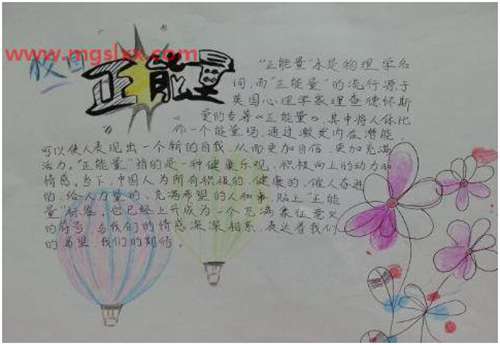 www.mgslxx.com
校园
正能量
“正能量”本是物理学名
词,而“正能量”的流行源于
英国心理学家理查德怀斯
曼的专著《正能量》,其中将人体比
作一个能量场,通过激发内在潜能,
可以使人表现出一个新的自我,从而更加自信、更加充满
活力。“正能量”指的是一种健康乐观、积极向上的动力和
情感。当下,中国人为所有积极的、健康的、催人奋进
的、给人力量的、充满希望的人和事,贴上“正能
量”标签。它已经上升成为一个充满象征意义
的符号,与我们的情感深深相系,表达着我们
的希望,我们的期待。